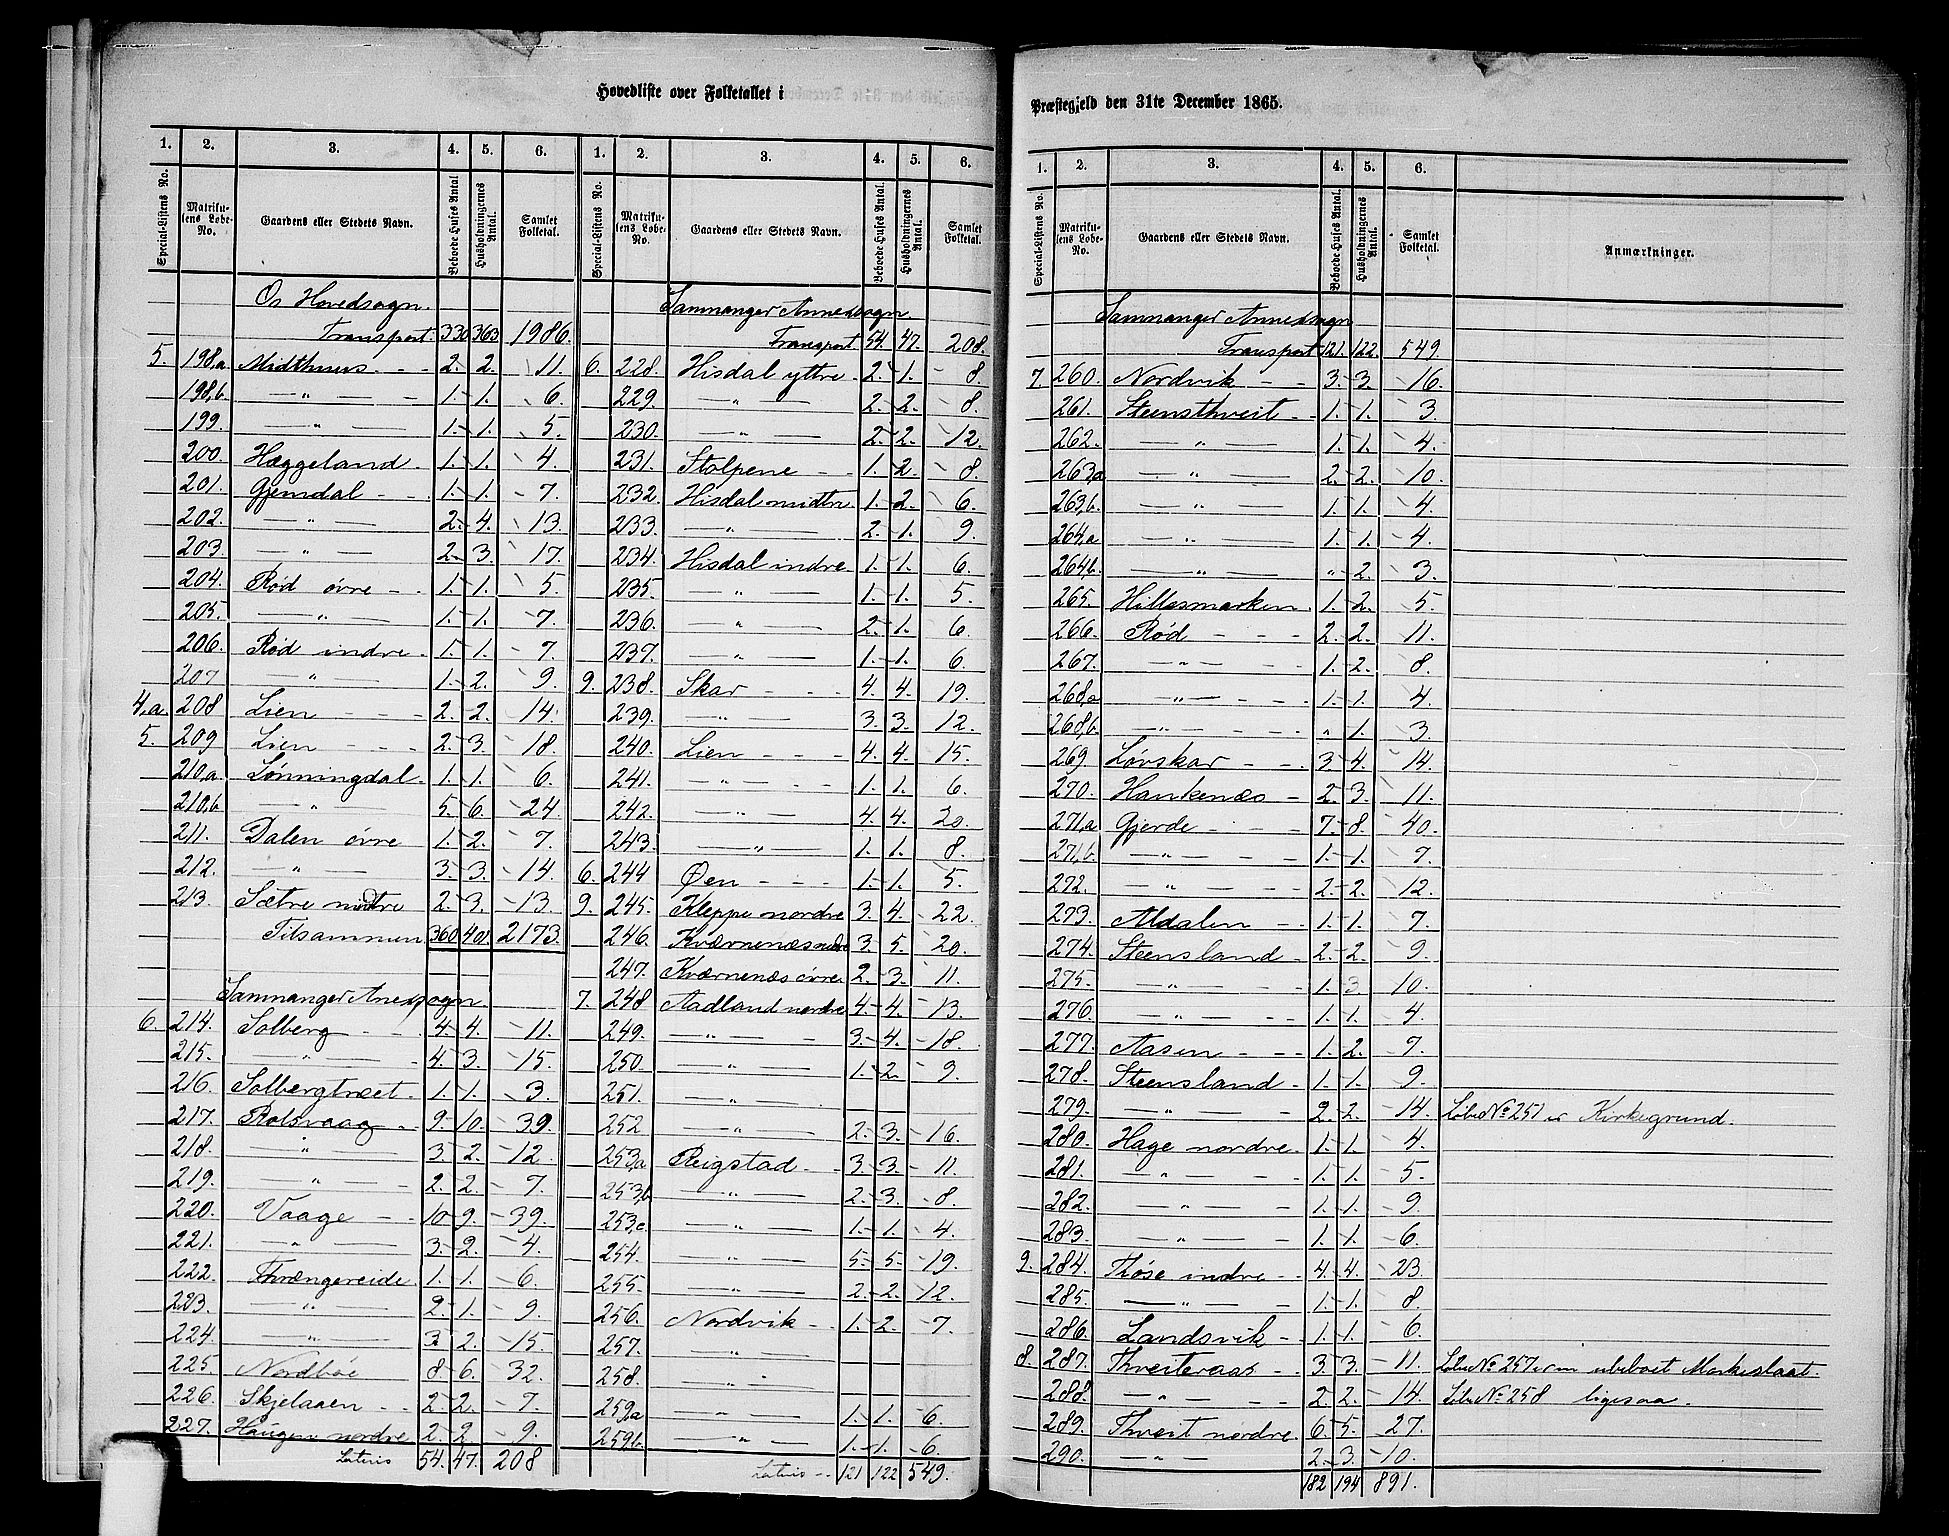 Hovedliste over Folketallet i
1. 2. 3. 4. 5. 6. 1. 2. 3. 4. 5. 6.
Special-Listens No. Matrikulens Løbe-No. Gaardens eller Stedets Navn. Beboede Huses Antal Husholdningernes Antal. Samlet Folketal. Special-Listens No. Matrikulens Løbe-No. Gaardens eller Stedets Navn. Beboede Huses Antal. Husholdningernes Antal. Samlet Folketal.
Os Hovedsogn.
Transport. 330 363 1986.
5. 198,a Midthuus - - 2. 2. 11.
198,b. — " — 1. 1. 6.
199. — " — 1. 1. 5.
200. Hæggeland - 1. 1. 4.
201. Gjemdal - - 1. 1. 7.
202. — " — 2. 4. 13.
203. — " — 2. 3. 17.
204. Rød øvre - - 1. 1. 5.
205. — " — 1. 1. 7.
206. Rød indre - 1. 1. 7.
207 — " — 1. 2. 9.
4,a. 208 Lien - - - 2. 2. 14.
5. 209 Lien - - - 2. 3. 18.
210,a. Lønningdal - 1. 1. 6.
210,b — " — 5. 6. 24.
211. Dalen øvre 1. 2. 7.
212. — " — 3. 3. 14.
213. Sætre midtre 2. 3. 13.
Tilsammen 360 401 2173.
Samnanger Anexsogn.
6. 214. Solberg - - 4. 4. 11.
215. — " — 4. 3. 15.
216. Solbergtræet - 1. 1. 3.
217. Rolsvaag - - 9. 10. 39.
218. — " — 3. 2. 12.
219. — " — 2. 2. 7.
220. Vaage - - 10. 9. 39.
221. — " — 3. 2. 4.
222. Thrængereide 1. 1. 6.
223. — " — 2. 1. 9.
224. — " — 3. 2. 15.
225. Nordbøe 8. 6. 32.
226. Skjelaaen - - 2. 2. 7.
227. Haugen nordre 2. 2. 9.
Lateris 54. 47. 208
Samnanger Annexsogn
Transport 54. 47. 208.
6. 228. Hisdal yttre - 2. 1. 8.
229. — " — 2. 2. 8.
230. — " — 2. 2. 12.
231. Stolpene - - 1. 2. 8.
232. Hisdal midtre 1. 2. 6.
233. — " — 2. 1. 9.
234. Hisdal indre 1. 1. 6.
235. — " — 1. 1. 5.
236. — " — 2. 1. 6.
237. — " — 1. 1. 6.
9. 238. Skar - - - 4. 4. 19.
239. — " — 3. 3. 12.
240. Lien - - - 4. 4. 15.
241. — " — 1. 1. 6.
242. — " — 4. 4. 20.
243. — " — 1. 1. 8.
6. 244 Øen - - - 1. 1. 5.
9. 245. Kleppe nordre 3. 4. 22.
246. Kværnenæs nedre 3. 5. 20.
247. Kværnenæs øvre 2. 3. 11.
7. 248 Aadland nordre 4. 4. 13.
249. — " — 3. 4. 18.
250. — " — 1. 2. 9.
251. — " —
252 — " — 2. 3. 16.
253,a Reigstad - - 3. 3. 11.
253,b — " — 2. 3. 8.
253,c — " — 1. 1. 4.
254. — " — 5. 5. 19.
255. — " — 2. 2. 12.
256. Nordvik - - 1. 2. 7.
257. — " —
258. — " —
259,a — " — 1. 1. 6.
259,b. — " — 1. 1. 6.
Lateris - - 121 122 549.
Præstegjeld den 31te December 1865.
1. 2. 3. 4. 5. 6.
Special-Listens No. Matrikulens Løbe-No. Gaardens eller Stedets Navn. Beboede Huses Antal. Husholdningernes Antal. Samlet Folketal. Anmærkninger.
Samnanger Annexsogn
Transport 121. 122. 549.
7. 260. Nordvik - - 3. 3. 16.
261. Steensthveit - - 1. 1. 3.
262. — " — 1. 1. 4.
263,a — " — 2. 2. 10.
263,b. — " — 1. 1. 4.
264,a — " — 1. 1. 4.
264,b. — " — " 2. 3.
265. Hillesmarken 1. 2. 5.
266. Rød - - - 2. 2. 11.
267. — " — 1. 2. 8.
268,a — " — 1. 1. 4.
268,b — " — " 1. 3.
269 Løvskar - - 3. 4. 14.
270. Hankenæs - 2. 3. 11.
271,a Gjerde - - 7. 8. 40.
271,b. — " — 1. 1. 7.
272. — " — 2. 2. 12.
273. Aldalen - - 1. 1. 7.
274. Steensland - 2. 2. 9.
275. — " — 1. 3 10.
276. — " — 1. 1. 4.
277. Aasen - - - 1. 2. 7.
278. Steensland - 1. 1. 9.
279. — " — 2. 2. 14. Løbe No. 251 er Kirkegrund.
280. Hage nordre 1. 1. 4.
281. — " — 1. 1. 5.
282. — " — 1. 1. 9.
283. — " — 1. 1. 6.
9. 284. Tøse indre - - 4. 4. 23.
285. — " — 1. 1. 8.
286. Landsvik - 1. 1. 6.
8. 287. Thveiteraas - 3. 3. 11. Løbe No. 257 er en ubeboet Markeslaat.
288. — " — 2. 2. 14. Løbe No. 258 ligesaa.
289. Thveit nordre 6. 5. 27.
290. — " — 2. 3. 10.
182 194 891.